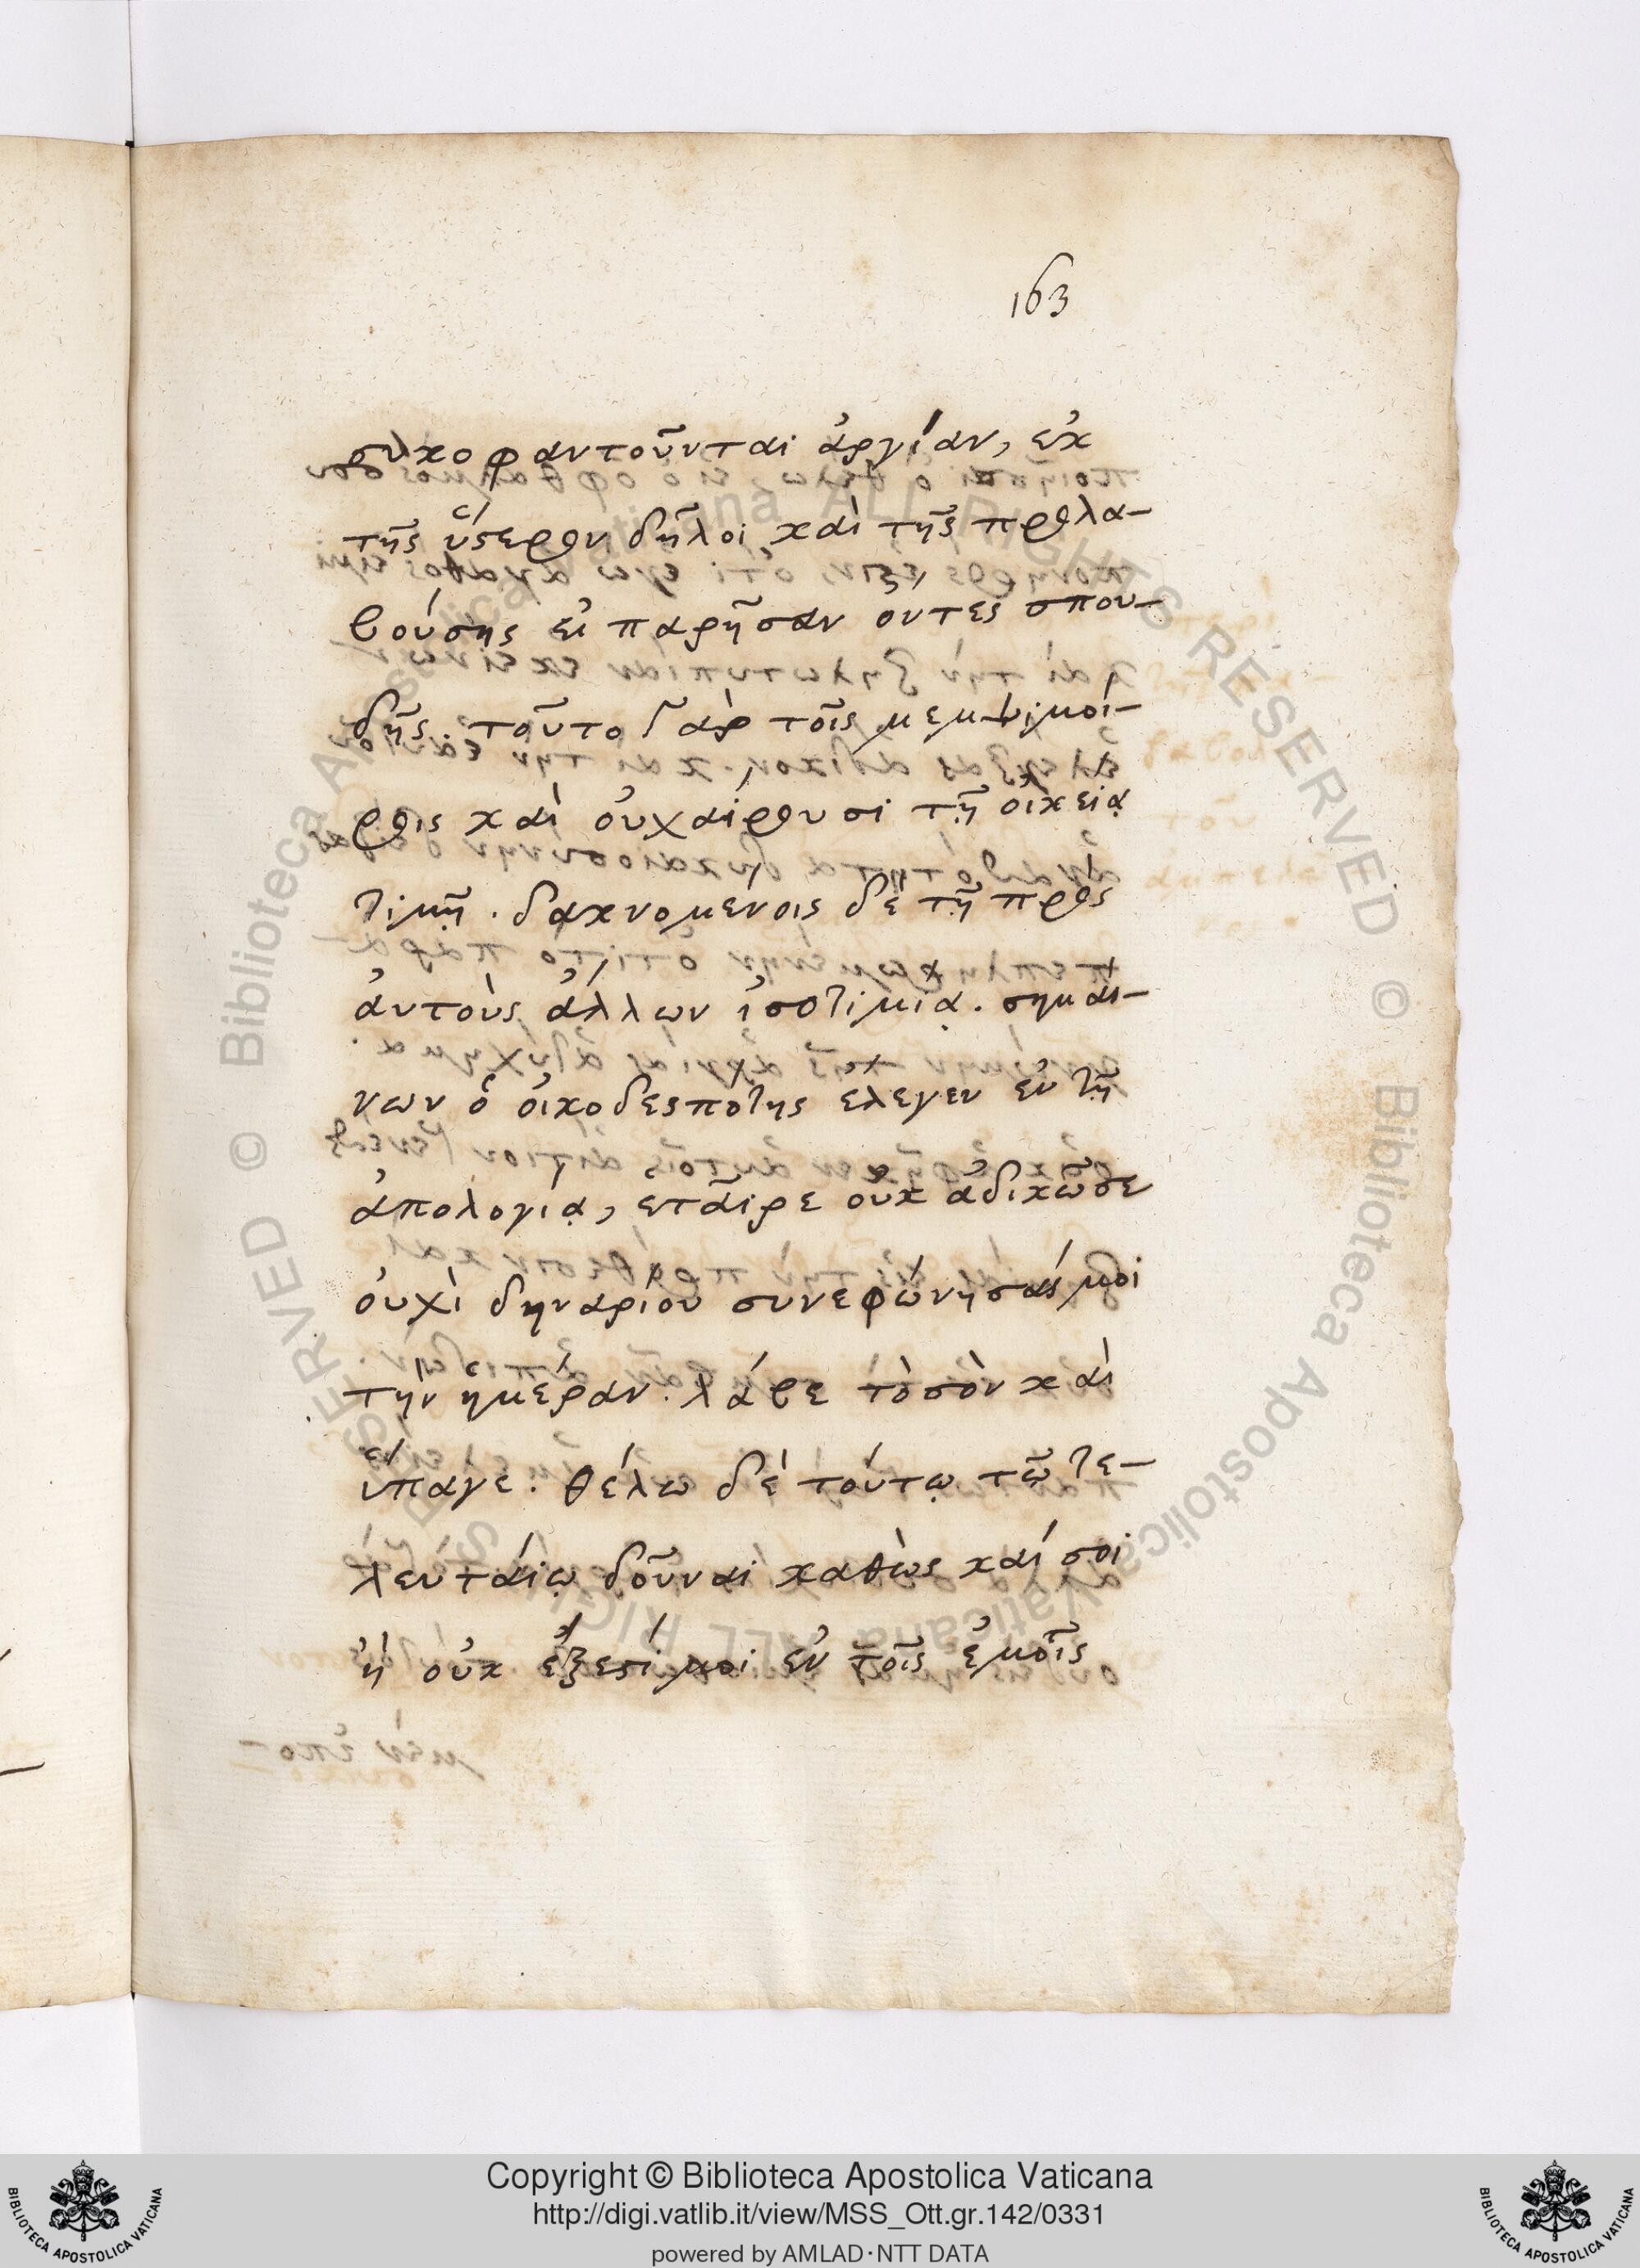 163
συκοφαντοῦνται ἀργίαν, ἐκ
τῆς ὕστερον δῆλοι καὶ τῆς προλα-
βούσης εἰ παρῆσαν ὄντες σπου-
δῆς. τοῦτο γὰρ τοῖς μεμψιμοί-
ροις καὶ οὐ χαίρουσι τῇ οἰκείᾳ
τιμῇ. δακνομένοις δὲ τῇ πρὸς
αὐτοὺς ἄλλων ἰσοτιμίᾳ. σημαί-
νων ὁ οἰκοδεσπότης ἔλεγεν ἐν τῇ
ἀπολογίᾳ, ἑταῖρε οὐκ ἀδικῶ σε
οὐχὶ δηναρίου συνεφώνησάς μοι
τὴν ἡμέραν. λάβε τὸ σὸν καὶ
ὕπαγε. θέλω δὲ τούτῳ τῷ τε-
λευταίῳ δοῦναι καθὼς καί σοι
ἢ οὐκ ἔξεστί μοι ἐν τοῖς ἐμοῖς
Copyright © Biblioteca Apostolica Vaticana
http://digi.vatlib.it/view/MSS_Ott.gr.142/0331
powered by AMLAD·NTT DATA
BIBLIOTECA APOSTOLICA VATICANA
BIBLIOTECA APOSTOLICA VATICANA